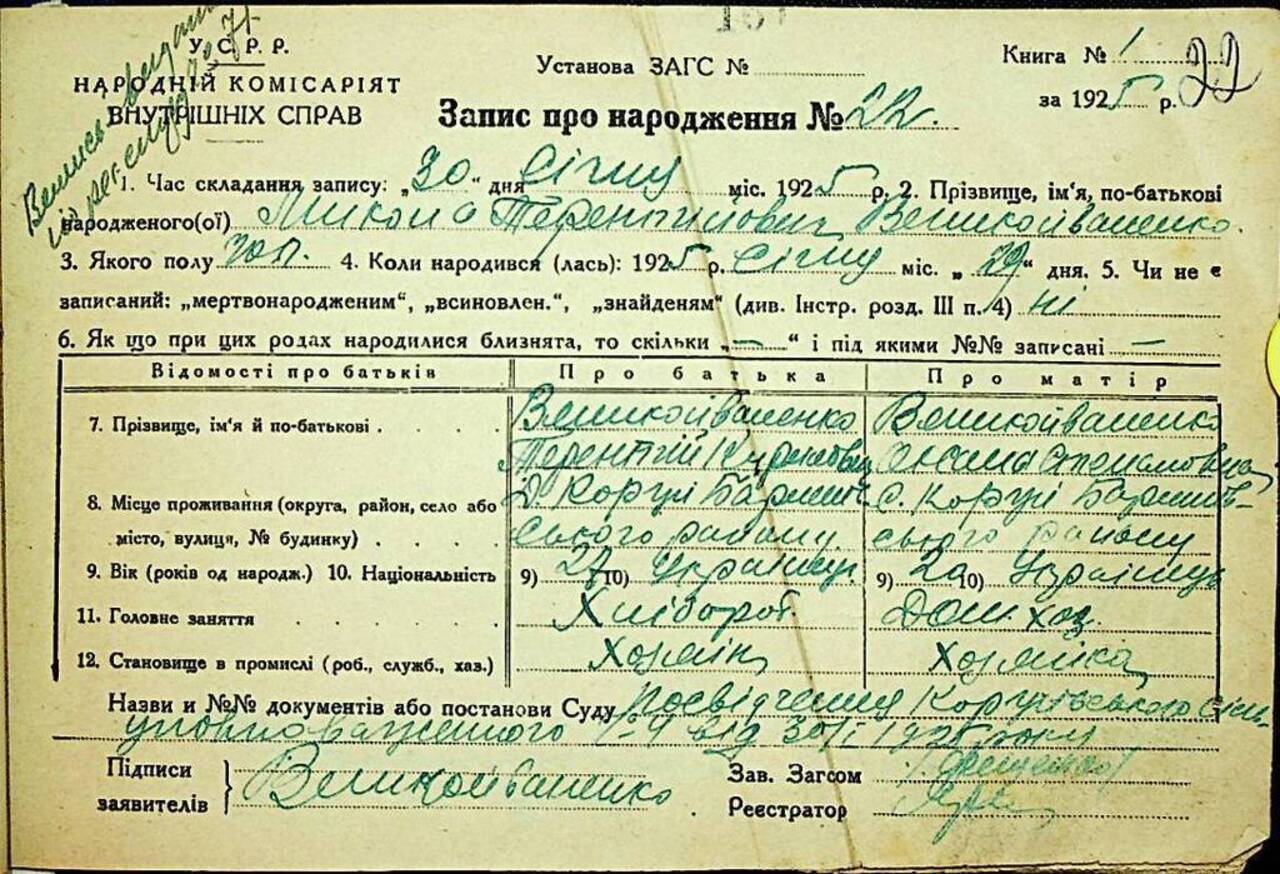 У. С. Р. Р.
НАРОДНІЙ КОМІСАРІЯТ
ВНУТРІШНІХ СПРАВ
Установа ЗАГС №
Книга № 1
22
за 1925 р.
Запис про народження № 22.
1. Час складання запису: „30“ дня Січня міс. 1925 р. 2. Прізвище, ім‘я, по-батькові
народженого(ої) Микола Терентійович Великойваненко.
3. Якого полу чол. 4. Коли народився (лась): 1925 р. Січня міс. „29“ дня. 5. Чи не є
записаний: „мертвонародженим“, „всиновлен.“, „знайденям“ (див. Інстр. розд. III п. 4) ні
6. Як що при цих родах народилися близнята, то скільки „—“ і під якими №№ записані —
Відомості про батьків Про батька Про матір
7. Прізвище, ім‘я й по-батькові . . . . Великойваненко Великойваненко
Терентій Оксана Степановна
8. Місце проживання (округа, район, село або
місто, вулиця, № будинку) . . . . ського району ського району
9. Вік (років од народж.) 10. Національність 9) 27 10) Українець 9) 10)
11. Головне заняття . . . . . . Хлібороб. Дом. хоз.
12. Становище в промислі (роб., служб., хаз.) Хозяїн Хозяйка
Назви и №№ документів або постанови Суду Посвідчення
уповноваженного від 30/I 1925 року
Підписи
заявителів } Великойваненко
Зав. Загсом
Реєстратор